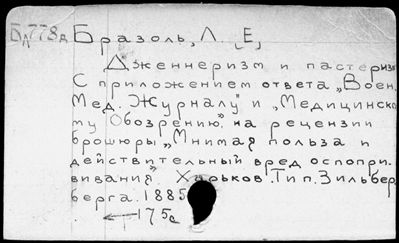 Бд778д Бразоль, Л. [Е.]
Дженнеризм и пастериз
С приложением ответа „Воен.
Мед. Журналу" и „Медицинско
му Обозрению", на рецензии
брошюры „Мнимая польза и
действительный вред оспопри-
вивания". Харьков. Тип. Зильбер
берга. 1885
175с